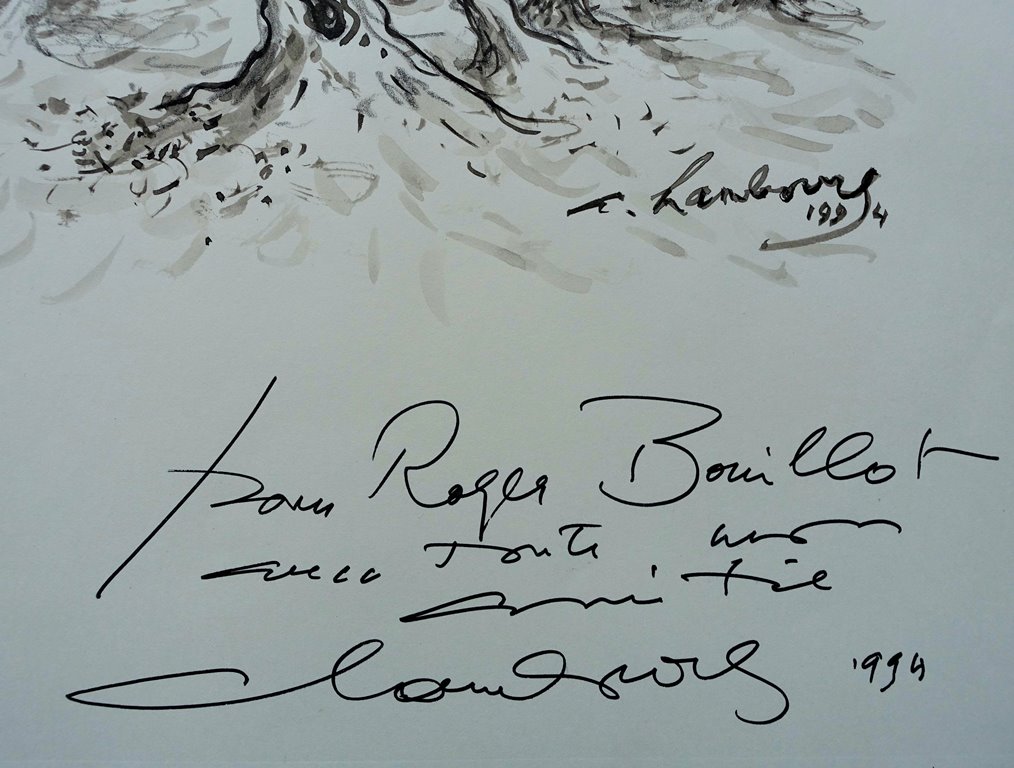 A. Hambourg
1994
pour Roger Bouillot
avec toute mon
amitié
AHambourg 1994